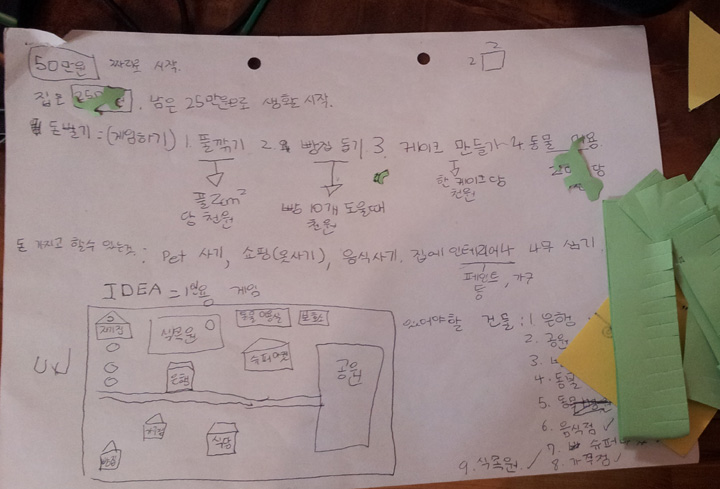 50만원 짜리로 시작.
2
2
집은 250, 남은 25만원으로 생활 시작.
돈벌기 : (게임하기) 1. 풀깎기 2. 빵집 돕기 3. 케이크 만들기 4. 동물 미용
풀 2cm²당 천원
빵 10개 도울때 천원
한 케이크당 천원
당
돈 가지고 할수 있는것 : Pet 사기, 쇼핑(옷사기), 음식사기. 집에 인테리어나 나무 심기.
페인트, 가구
등
IDEA = 1인용 게임
식목원
은행
슈퍼마켓
공원
식당
빵집
있어야할 건물 : 1 은행
2. 공원
3.
4. 동물
5. 동물
6. 음식점 ✓
7. 슈퍼
8. 가구점 ✓
9. 식목원 ✓